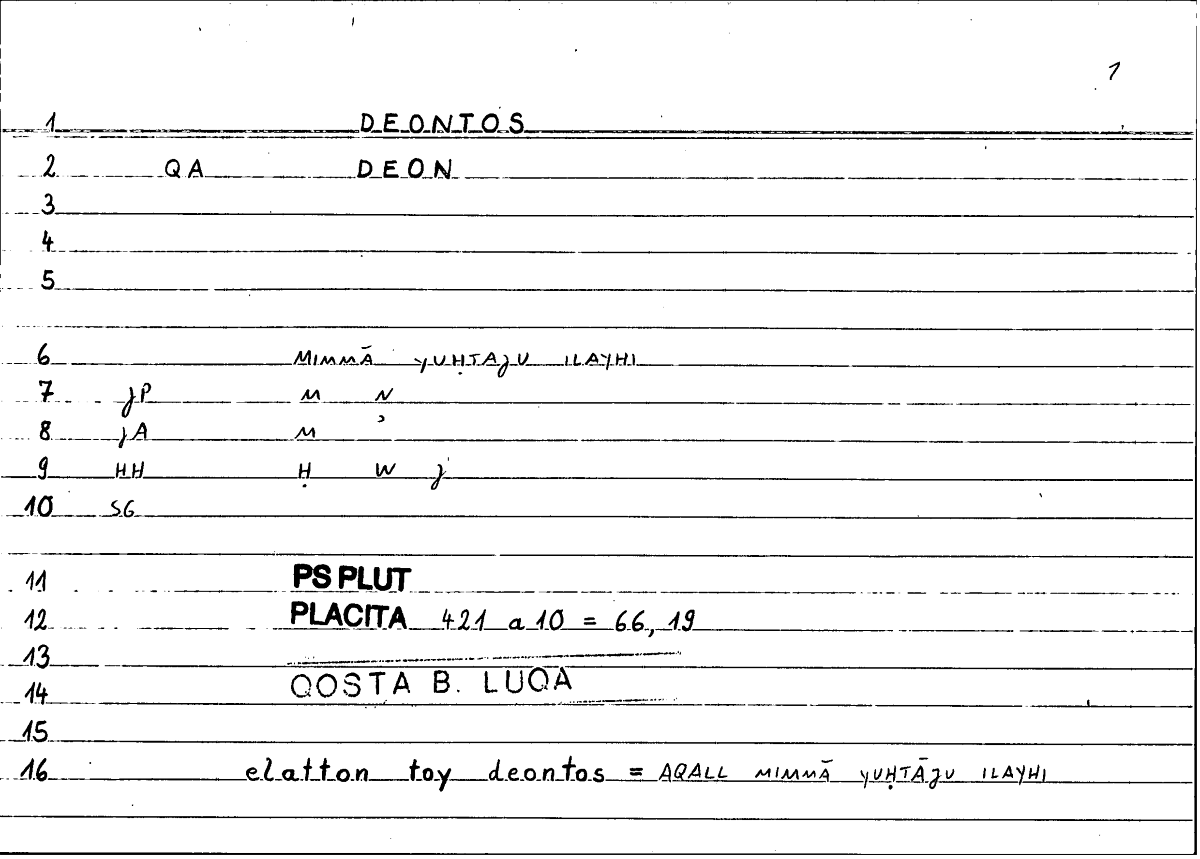 1
1 DEONTOS
2 QA DEON
3
4
5
6 MIMMĀ YUḤTAJU ILAYHI
7 JP M N
8 JA M ʾ
9 HH Ḥ W J
10 SG
11 PS PLUT
12 PLACITA 421 a 10 = 66, 19
13
14 QOSTA B. LUQA
15
16 elatton toy deontos = AQALL MIMMĀ YUḤTĀJU ILAYHI